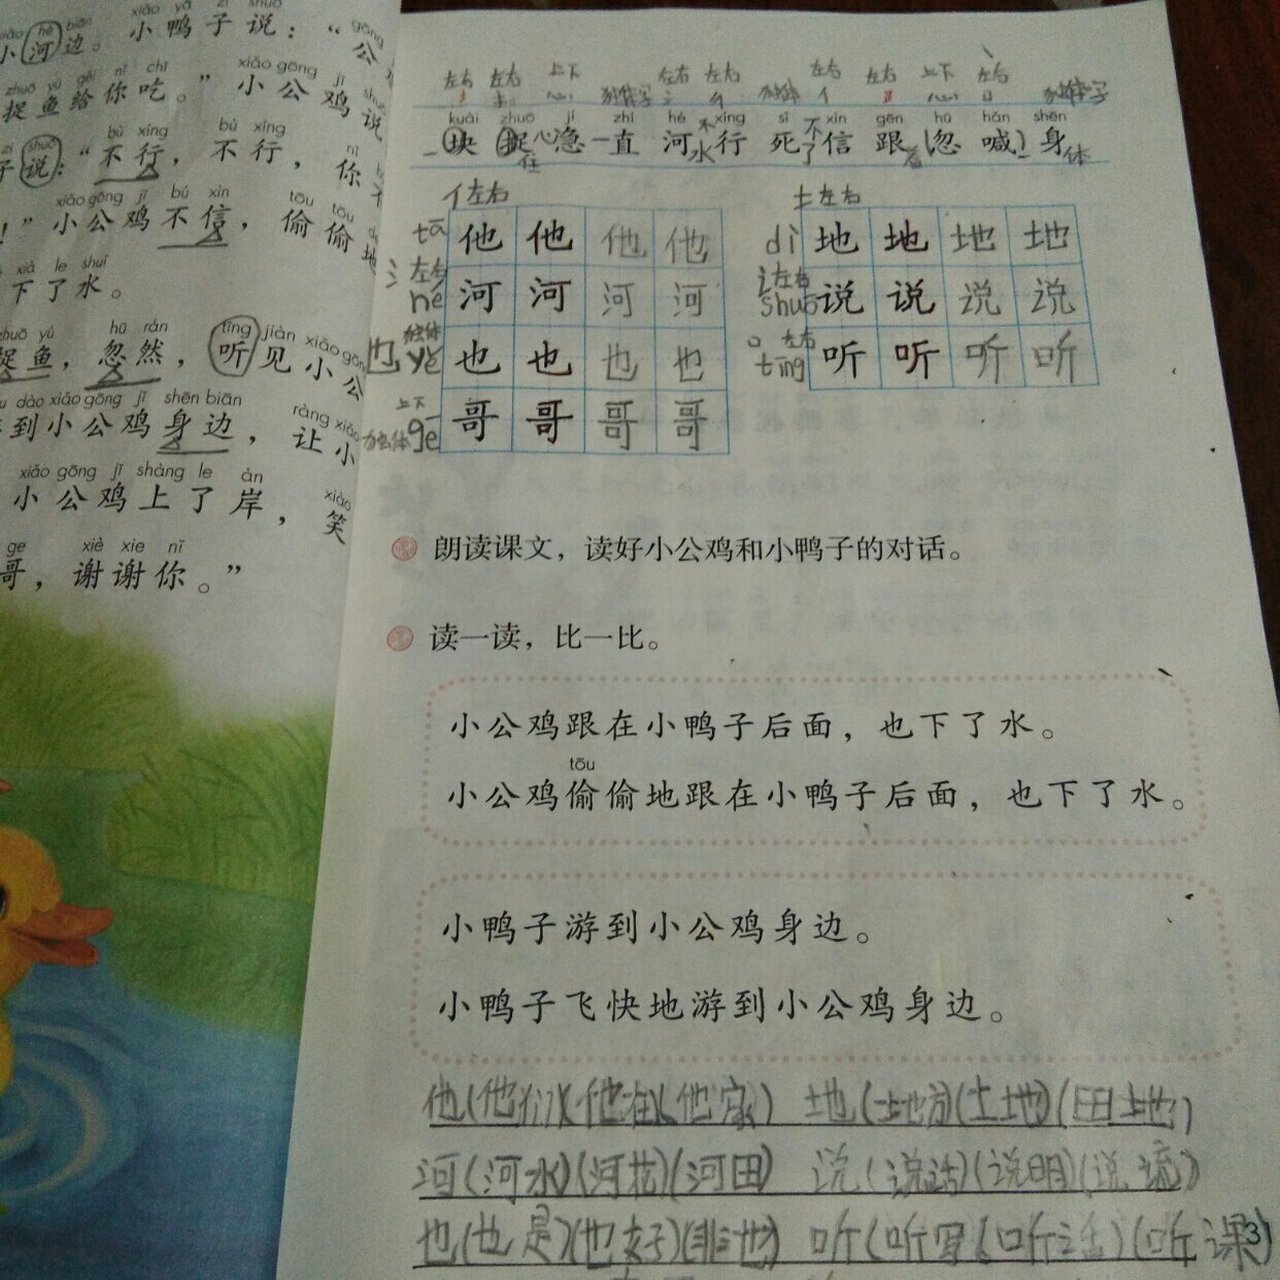 xiǎo hé biān xiǎo yā zi shuō gōng
小河边。小鸭子说：“公
zhuō yú gěi nǐ chī xiǎo gōng jī shuō
捉鱼给你吃。”小公鸡说
zi shuō bù xíng bù xíng nǐ
子说：“不行，不行，你
xiǎo gōng jī bú xìn tōu tōu de
！”小公鸡不信，偷偷地
xià le shuǐ
下了水。
zhuō yú hū rán tīng jiàn xiǎo gōng
捉鱼，忽然，听见小公
dào xiǎo gōng jī shēn biān ràng xiǎo
到小公鸡身边，让小
xiǎo gōng jī shàng le àn xiào
小公鸡上了岸，笑
ge xiè xie nǐ
哥，谢谢你。”
左右 左右 上下 左右 左右 左右 左右 上下 左右
kuài zhuō jí zhí hé xíng sǐ xìn gēn hū hǎn shēn
块 捉 急 直 河 行 死 信 跟 忽 喊 身
亻左右
tā 他 他 他 他
氵左右
hé 河 河 河 河
独体
也 yě 也 也 也 也
上下
独体 gē 哥 哥 哥 哥
土左右
dì 地 地 地 地
讠左右
shuō 说 说 说 说
左右
tīng 听 听 听 听
朗读课文，读好小公鸡和小鸭子的对话。
读一读，比一比。
小公鸡跟在小鸭子后面，也下了水。
tōu
小公鸡偷偷地跟在小鸭子后面，也下了水。
小鸭子游到小公鸡身边。
小鸭子飞快地游到小公鸡身边。
他(他们)(他在)(他家) 地(土地)(田地)
河(河水)(河花)(河田) 说(说话)(说明)
也(也是)(也好) 听(听写)(听话)(听课)